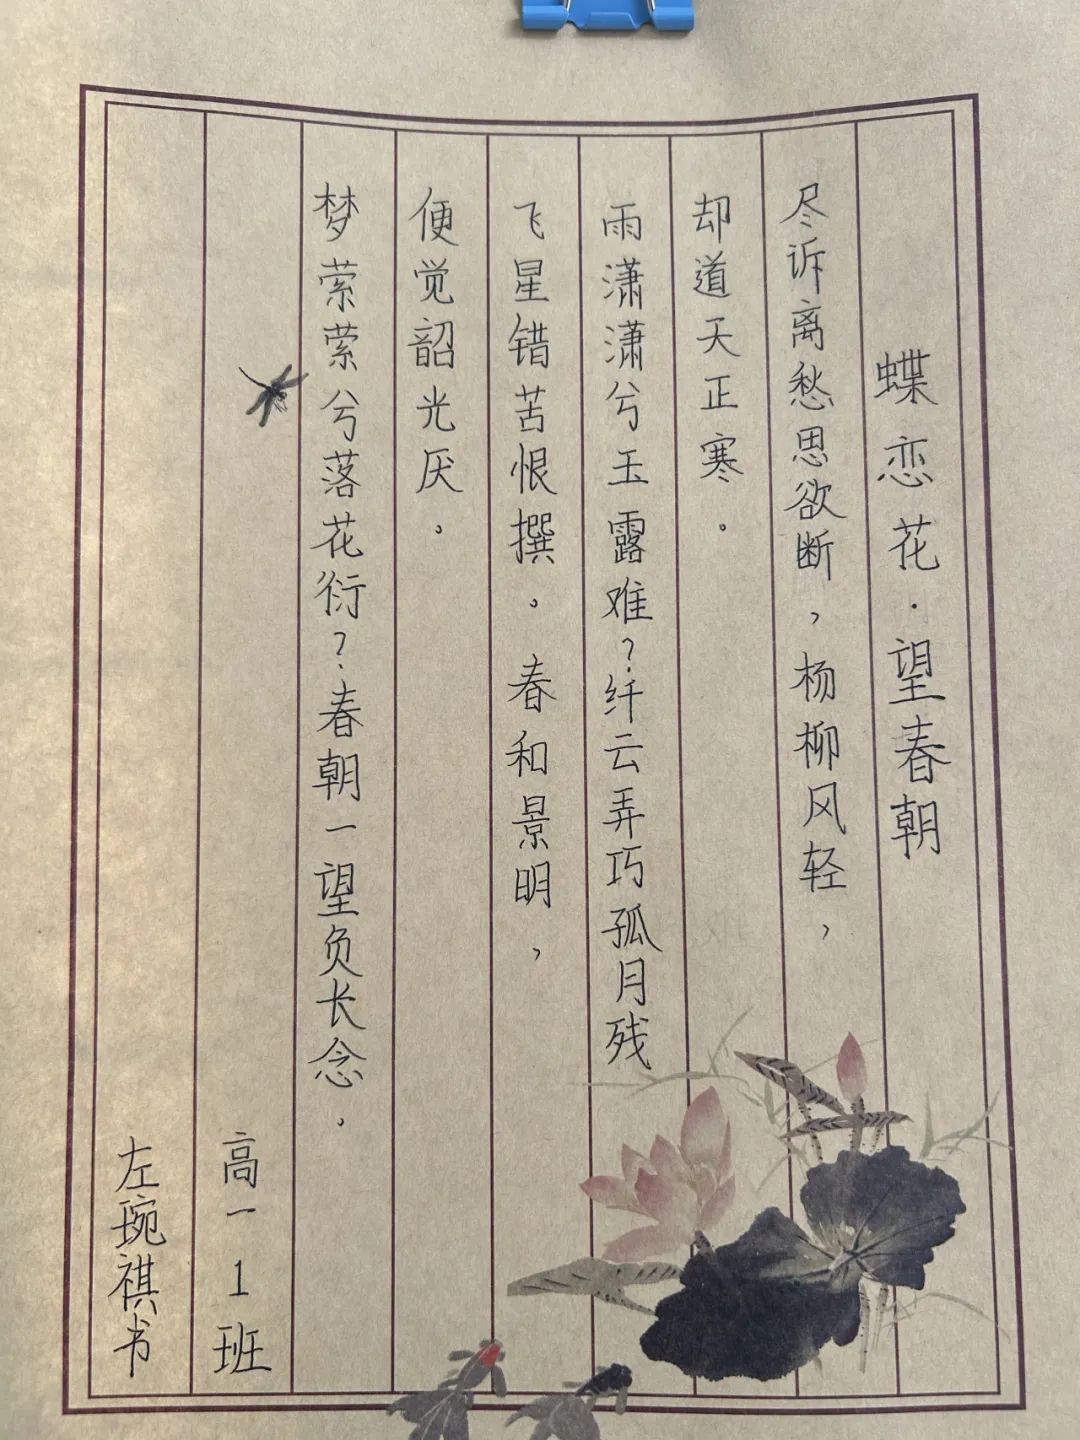 蝶恋花·望春朝
尽诉离愁思欲断，杨柳风轻，
却道天正寒。
雨潇潇兮玉露难？纤云弄巧孤月残
飞星错苦恨撰。春和景明，
便觉韶光厌。
梦萦萦兮落花衍？春朝一望负长念。
高一1班
左琬祺书